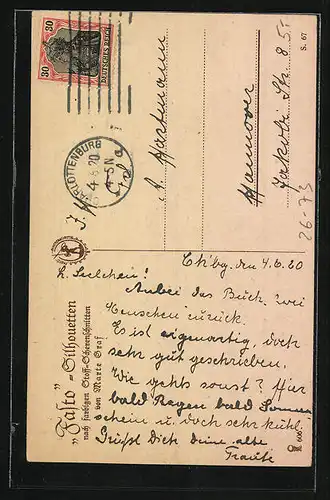 30
30
DEUTSCHES REICH
CHARLOTTENBURG
4.6.20
4-5N
S. 67
A Hartmann
Hannover
Jakobi Str 85
26-73
„Falto“-Silhouetten
nach farbigen Stoff-Scherenschnitten
von Marte Graf
Chbg. den 4.6.20
L. Seelchen!
Anbei das Buch, zwei
Menschen zurück.
Es ist eigenartig, doch
sehr gut geschrieben.
Wie gehts sonst? Hier
bald Regen bald Sonnen
schein u. doch sehr kühl.
Grüßt Dich deine alte
Traute